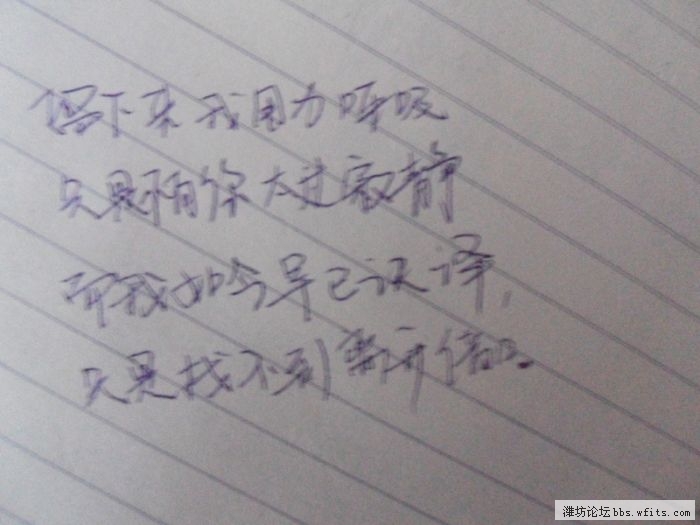 停下来我用力呼吸
只是陪你太过寂静
而我如今早已决择，
只是找不到离开借口。
潍坊论坛bbs.wfits.com